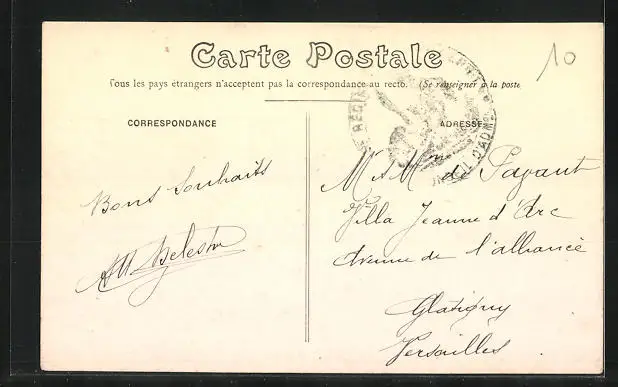 10
Carte Postale
Tous les pays étrangers n'acceptent pas la correspondance au recto. (Se renseigner à la poste
CORRESPONDANCE
ADRESSE
Bons Souhaits
M. & Mme de Pagant
Villa Jeanne d'Arc
Avenue de l'alliance
Glatigny
Versailles